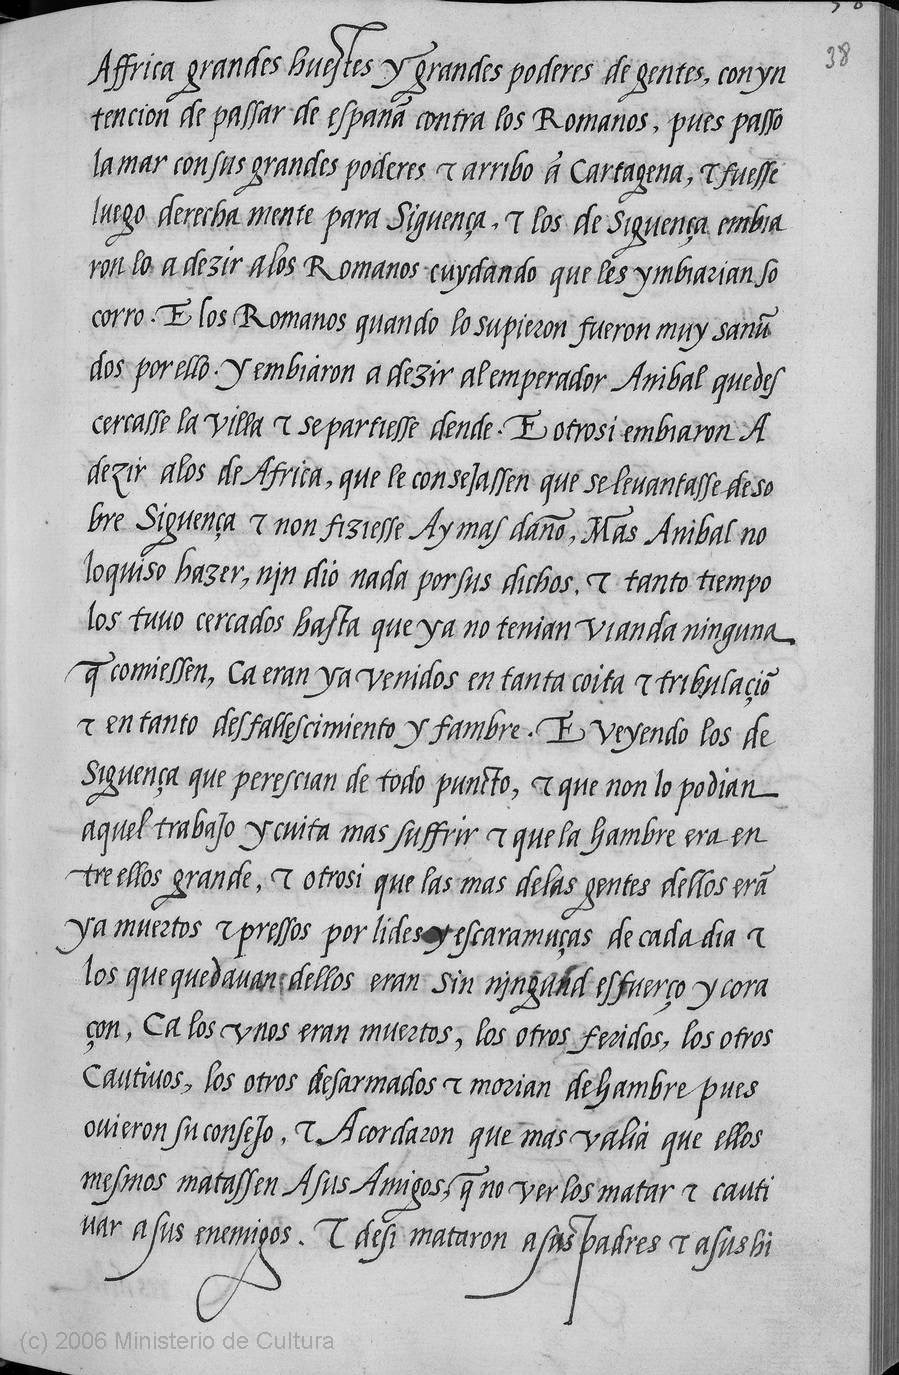 38
Affrica grandes huestes y grandes poderes de gentes, con yn
tencion de passar de españa contra los Romanos, pues passo
la mar con sus grandes poderes τ arribo ã Cartagena, τ fuesse
luego derecha mente para Siguença, τ los de Siguença embia
ron lo a dezir a los Romanos cuydando que les ymbiarian so
corro. E los Romanos quando lo supieron fueron muy sanũ
dos por ello. y embiaron a dezir al emperador Anibal que des
cercasse la villa τ se partiesse dende. E otrosi embiaron A
dezir a los de Africa, que le consejassen que se levantasse de so
bre Siguença τ non fiziesse Ay mas daño, Mas Anibal no
lo quiso hazer, njn dio nada por sus dichos, τ tanto tiempo
los tuuo cercados hasta que ya no tenian vianda ninguna
q̃ comiessen, Ca eran ya venidos en tanta coita τ tribulaçiõ
τ en tanto desfallescimiento y fambre. E veyendo los de
Siguença que perescian de todo puncto, τ que non lo podian
aquel trabajo y cuita mas suffrir τ que la hambre era en
tre ellos grande, τ otrosi que las mas delas gentes dellos erã
ya muertos τ pressos por lides y escaramuças de cada dia τ
los que quedauan dellos eran sin njngund esfuerço y cora
çon, Ca los vnos eran muertos, los otros feridos, los otros
Cautiuos, los otros desarmados τ morian de hambre pues
ouieron su consejo, τ Acordaron que mas valia que ellos
mesmos matassen A sus Amigos, q̃ no ver los matar τ cauti
uar a sus enemigos. τ desi mataron a sus padres τ a sus hi
(c) 2006 Ministerio de Cultura